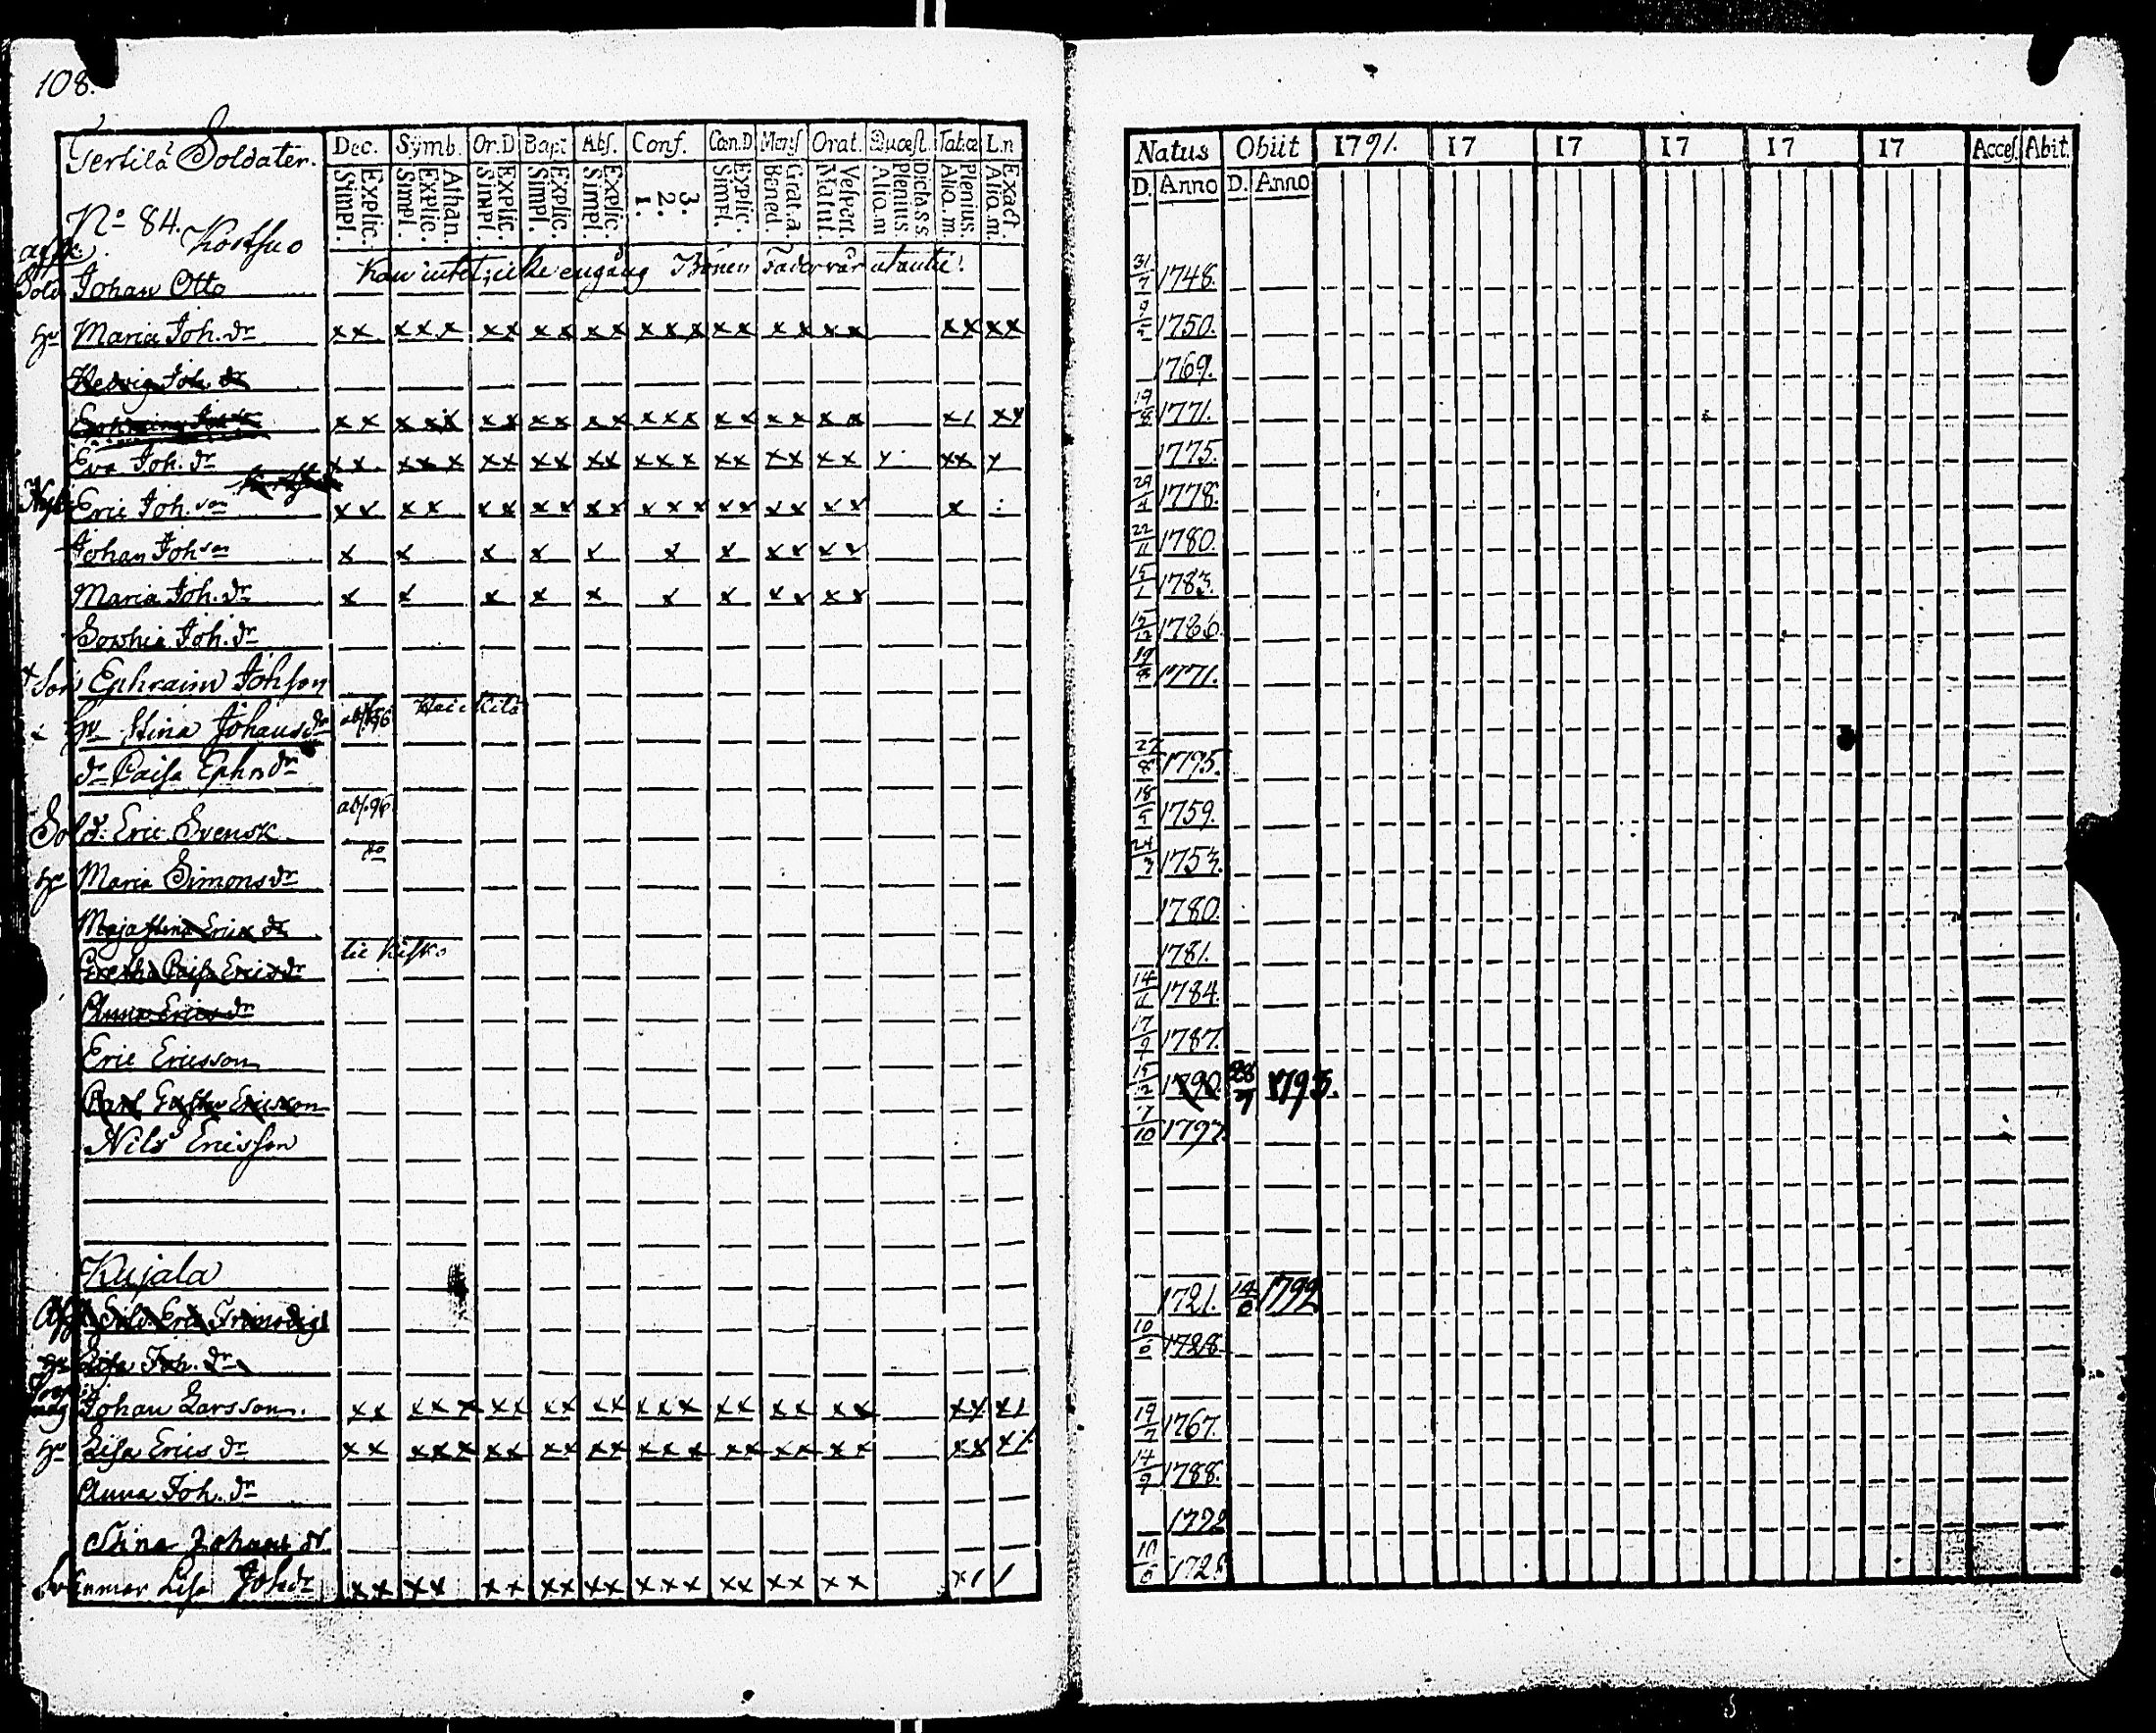 108.
Tertilä Soldater.
Dec. Symb. Or.D Bapt Abs. Conf. Cœn.D Mens Orat. Quæst. Tabœ L.n
Explic. Simpl. Athan. Explic. Simpl. Explic. Simpl. Explic. Simpl. Explic. Simpl. 3. 2. 1. Explic. Simpl. Grat.a. Bened. Vespert. Matut. Dicta.S.s. Plenius. Aliq.m Plenius. Aliq.m. Exact. Aliq.m.
Natus Obiit 1791. 17 17 17 17 17 Acces. Abit.
D. Anno D. Anno
No 84. Kostsuo
Kan intet, icke engång Bönen Fader vår utantil.
Sold Johan Otto 31/7 1748.
hu Maria Joh. dr xx xxx xx xx xx xxx xx xx xx xx xx 1750.
Hedvig Joh. dr 1769.
xx xxx xx xx xx xxx xx xx xx x1 xx 19/8 1771.
Eva Joh. dr xx xxx xx xx xx xxx xx xx xx xx 1775.
Eric Joh. son xx xx xx xx xx xxx xx xx xx x 29/4 1778.
Johan Joh son x x x x x x x xx xx 22/11 1780.
Maria Joh. dr x x x x x x x xx xx 15/1 1783.
Sophia Joh. dr 15/12 1786.
Son Ephraim Johson 19/8 1771.
hu Stina Johans dr abs. 96
dr Caisa Ephr dr 27/8 1795.
Sold. Eric Svensk abs. 96 18/5 1759.
hu Maria Simons dr do 24/3 1753.
Maja Stina Erics dr 1780.
Gretha Caisa Erics dr 1781.
Anna Erics dr 14/11 1784.
Eric Ericsson 17/9 1787.
Carl Gustav Ericsson 15/2 1790 28/7 1793.
Nils Ericsson 7/10 1797.
Kujala
Sold. Eric 1721. 1792
Lisa Joh. dr 1728.
Johan Larsson. xx xxx xx xx xx xxx xx xx xx xx x1 19/7 1767.
hu Lisa Erics dr xx xxx xx xx xx xxx xx xx xx xx 14/9 1788.
Anna Joh. dr
Stina Johans dr 1792
Lisa Joh dr xx xx xx xx xx xxx xx xx xx x1 1